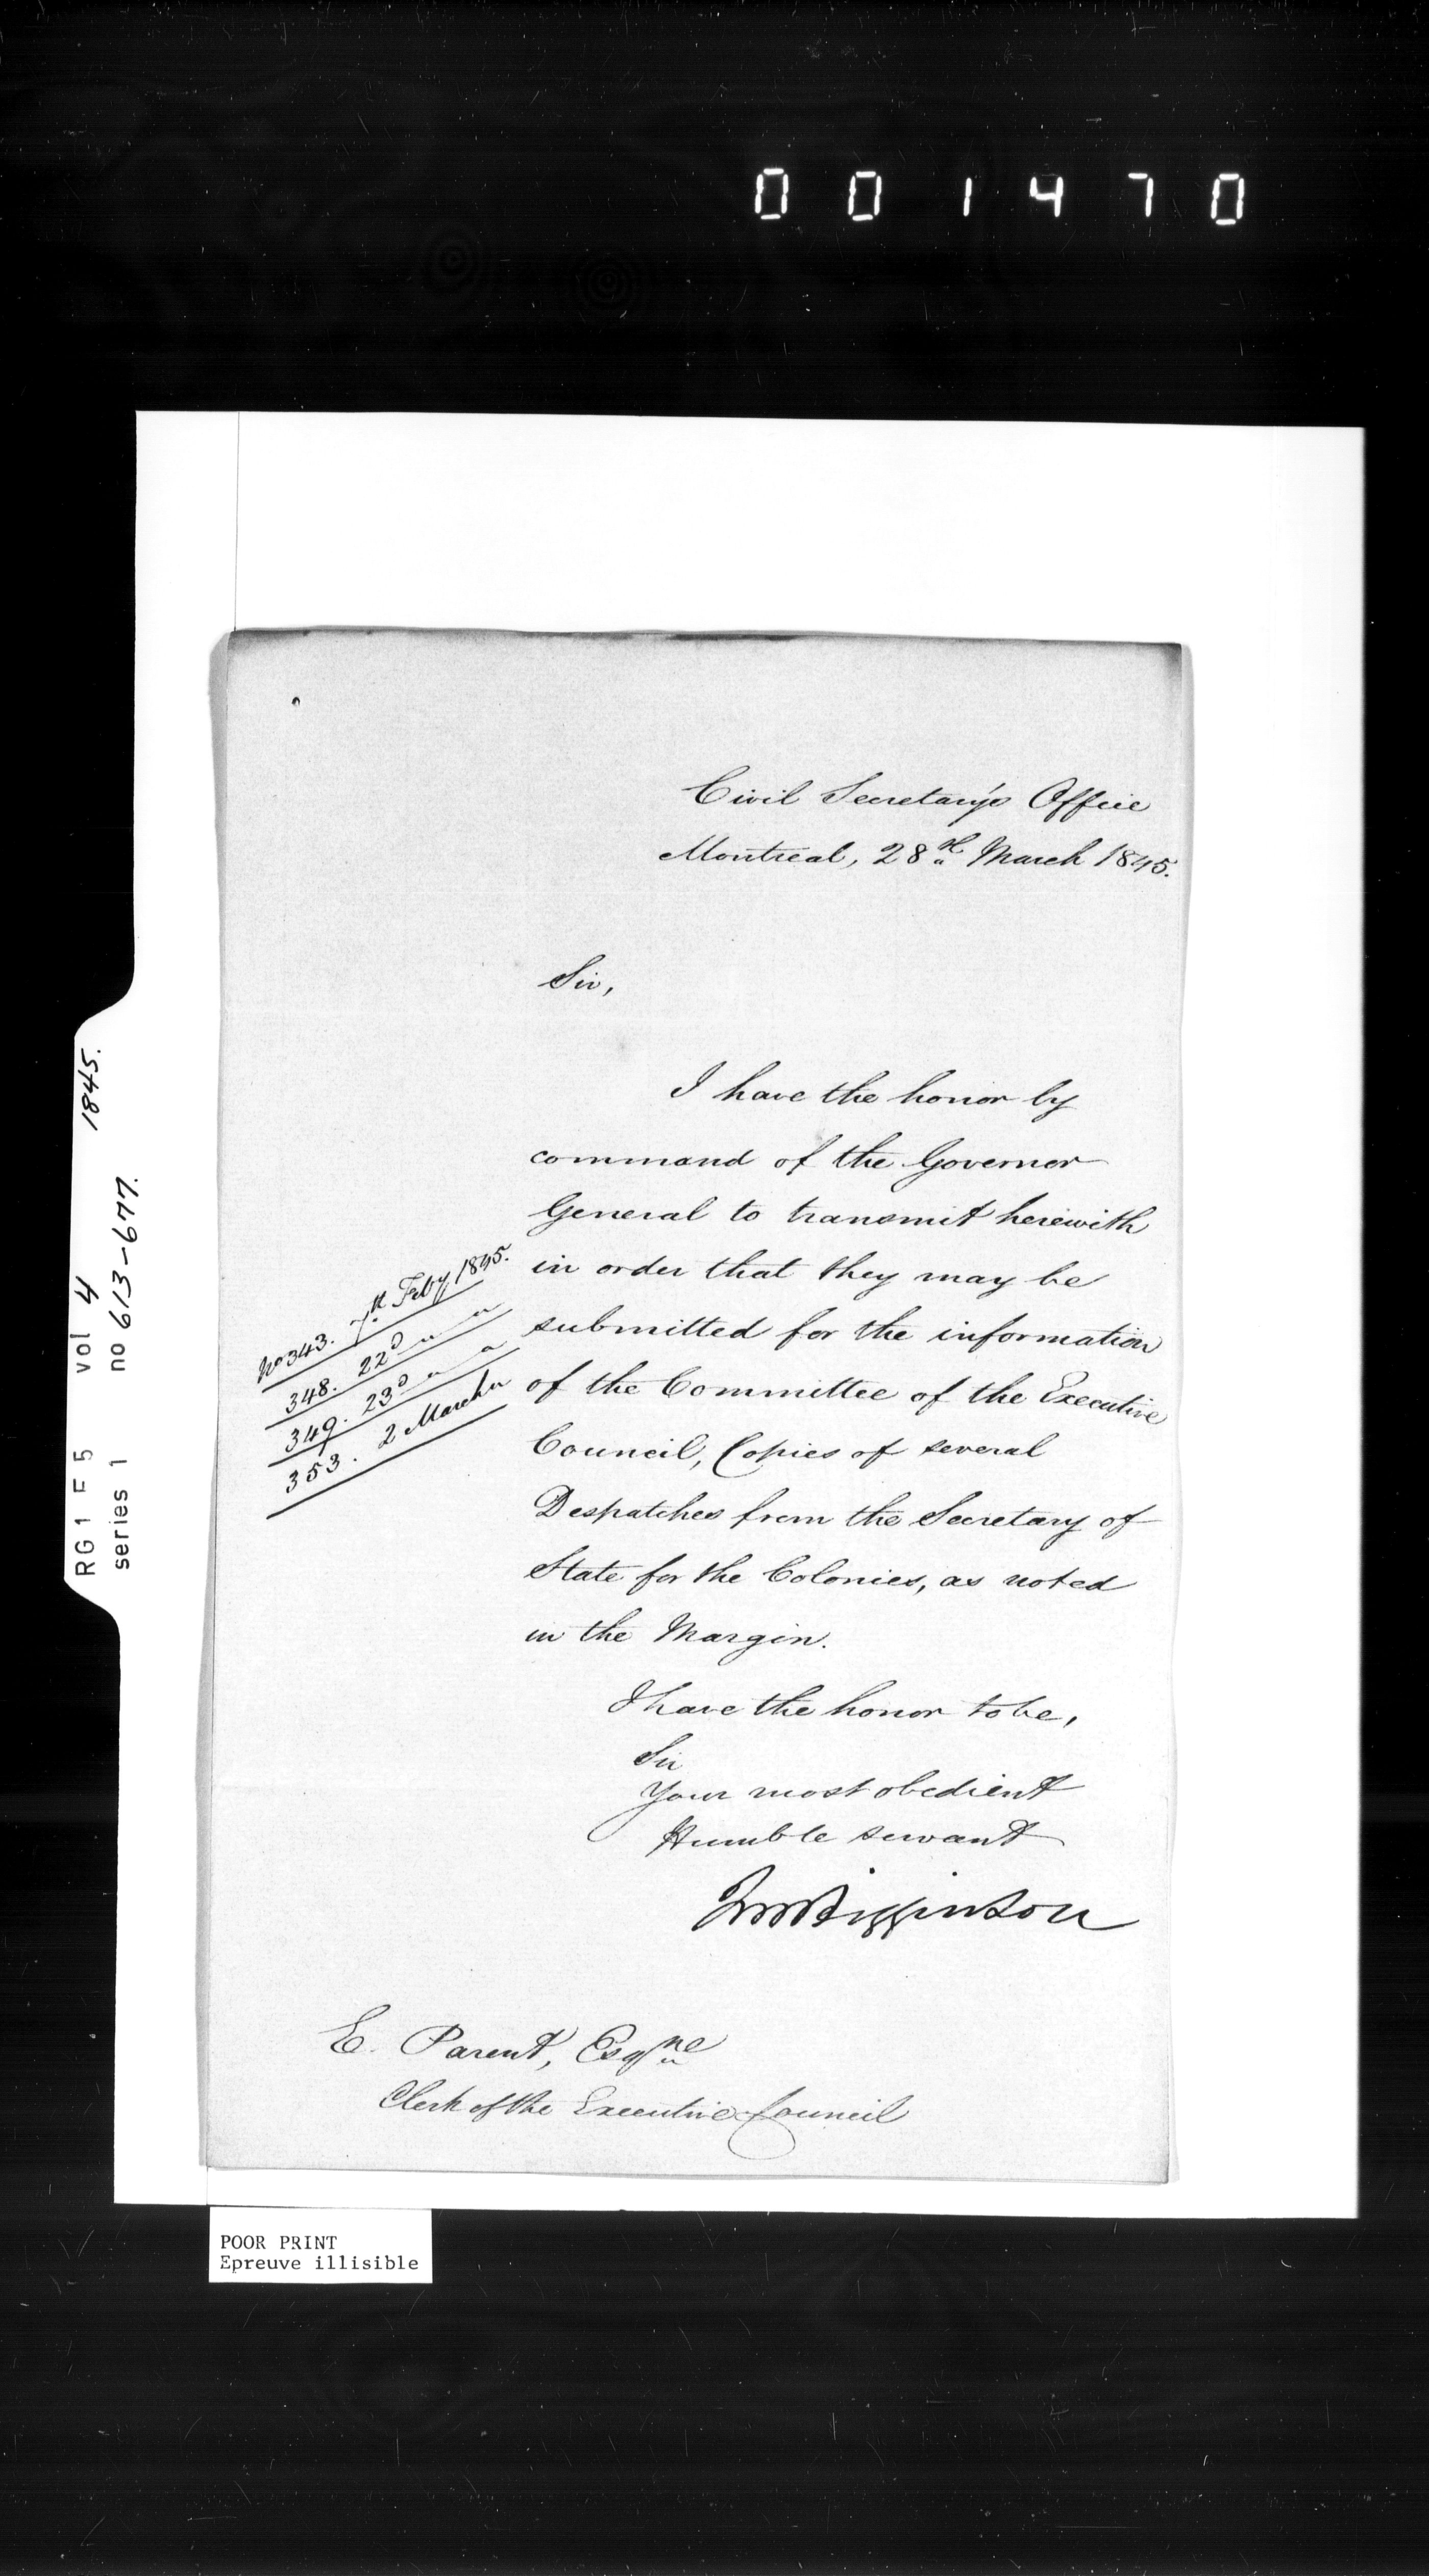 001470
Civil Secretary's Office
Montreal, 28th March 1845.
Sir,
I have the honor by
command of the Governor
General to transmit herewith
in order that they may be
submitted for the information
of the Committee of the Executive
Council, Copies of several
Despatches from the Secretary of
State for the Colonies, as noted
in the Margin.
No 343. 7th Feby 1845.
348. 22d " "
349. 23d " "
353. 2 March "
I have the honor to be,
Sir
Your most obedient
Humble servant
JMHigginson
E. Parent, Esqre
Clerk of the Executive Council
RG1 E5 vol 4 1845.
series 1 no 613-677.
POOR PRINT
Epreuve illisible